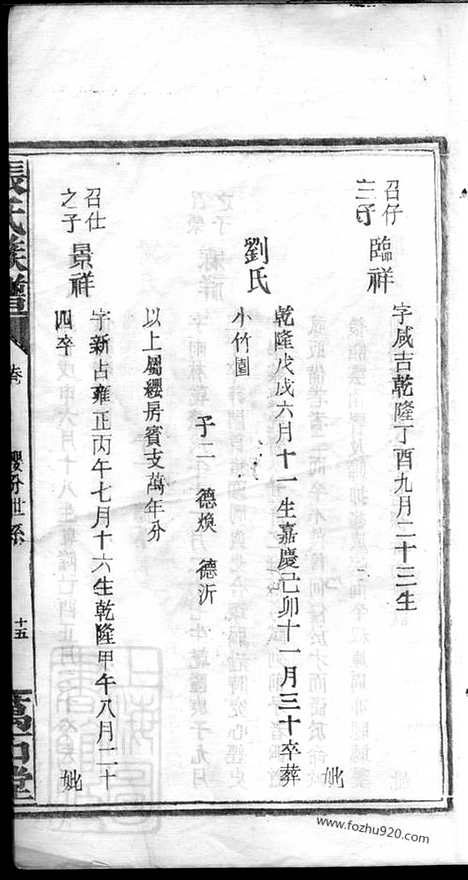 召仔
之子
臨祥
字咸吉乾隆丁酉九月二十三生
妣
劉氏
乾隆戊戌六月十一生嘉慶己卯十一月三十卒葬
小竹園
子二 德煥 德沂
以上屬纓房賓支萬年分
召仕
之子
景祥
字新占雍正丙午七月十六生乾隆甲午八月二十
四卒
妣
張氏族譜
卷
纓分世系
十五
萬石堂
www.fozhu920.com